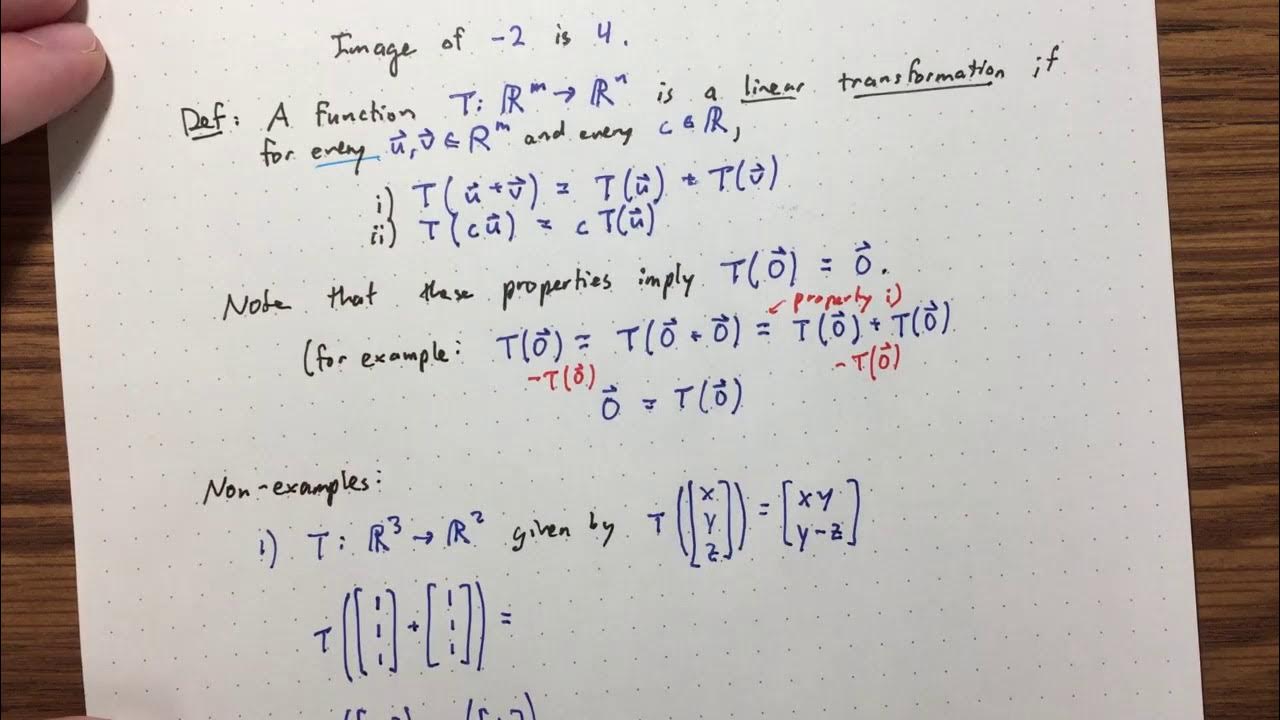 Image of -2 is 4.
Def: A function T: ℝᵐ → ℝⁿ is a linear transformation if
for every u⃗, v⃗ ∈ ℝᵐ and every c ∈ ℝ,
i) T(u⃗ + v⃗) = T(u⃗) + T(v⃗)
ii) T(cu⃗) = c T(u⃗)
Note that these properties imply T(0⃗) = 0⃗.
property i)
(for example: T(0⃗) = T(0⃗ + 0⃗) = T(0⃗) + T(0⃗)
-T(0⃗) -T(0⃗)
0⃗ = T(0⃗)
Non-examples:
i) T: ℝ³ → ℝ² given by T([x y z]) = [xy y-z]
T([1 1 1] + [1 1 1]) =